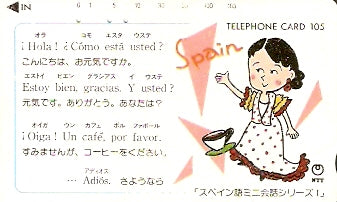 ◀IN
TELEPHONE CARD 105
Spain
オラ コモ エスタ ウステ
¡Hola! ¿Cómo está usted?
こんにちは、お元気ですか。
エストイ ビエン グラシアス イ ウステ
Estoy bien, gracias. Y usted?
元気です。ありがとう。あなたは?
オイガ ウン カフェ ポル ファボール
¡Oiga! Un café, por favor.
すみませんが、コーヒーをください。
アディオス
… Adiós. さようなら
NTT
「スペイン語ミニ会話シリーズ1」